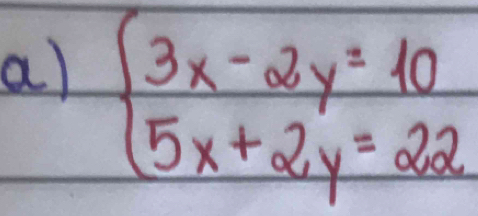 a) { 3x - 2y = 10
5x + 2y = 22